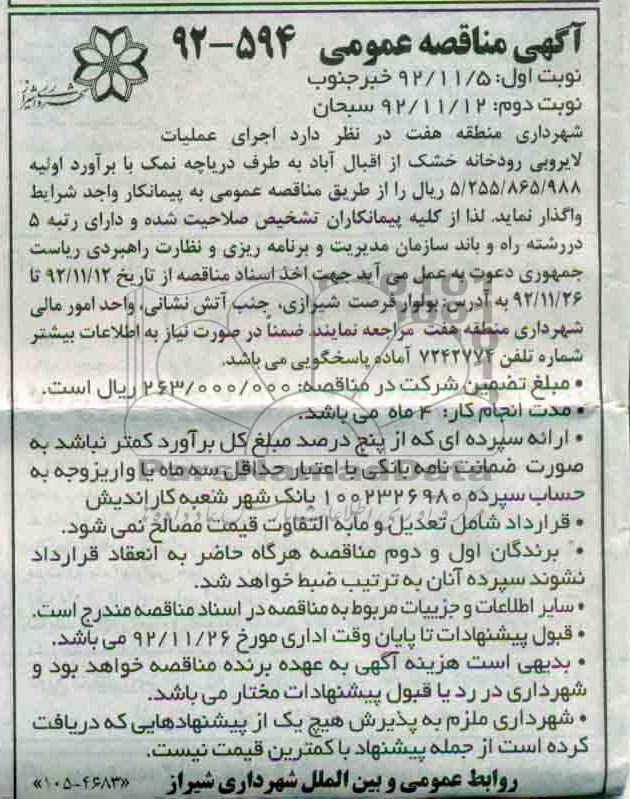 آگهی مناقصه عمومی ۵۹۴-۹۲
نوبت اول: ۹۲/۱۱/۵ خبرجنوب
نوبت دوم: ۹۲/۱۱/۱۲ سبحان
شهرداری منطقه هفت در نظر دارد اجرای عملیات
لایروبی رودخانه خشک از اقبال آباد به طرف دریاچه نمک با برآورد اولیه
۵/۲۵۵/۸۶۵/۹۸۸ ریال را از طریق مناقصه عمومی به پیمانکار واجد شرایط
واگذار نماید. لذا از کلیه پیمانکاران تشخیص صلاحیت شده و دارای رتبه ۵
دررشته راه و باند سازمان مدیریت و برنامه ریزی و نظارت راهبردی ریاست
جمهوری دعوت به عمل می آید جهت اخذ اسناد مناقصه از تاریخ ۹۲/۱۱/۱۲ تا
۹۲/۱۱/۲۶ به آدرس: بولوار فرصت شیرازی، جنب آتش نشانی، واحد امور مالی
شهرداری منطقه هفت مراجعه نمایند. ضمناً در صورت نیاز به اطلاعات بیشتر
شماره تلفن ۷۲۴۲۷۷۴ آماده پاسخگویی می باشد.
• مبلغ تضمین شرکت در مناقصه: ۲۶۳/۰۰۰/۰۰۰ ریال است.
• مدت انجام کار: ۴ ماه می باشد.
• ارائه سپرده ای که از پنج درصد مبلغ کل برآورد کمتر نباشد به
صورت ضمانت نامه بانکی با اعتبار حداقل سه ماه یا واریز وجه به
حساب سپرده ۱۰۰۲۳۲۶۹۸۰ بانک شهر شعبه کاراندیش
• قرارداد شامل تعدیل و مابه التفاوت قیمت مصالح نمی شود.
• برندگان اول و دوم مناقصه هرگاه حاضر به انعقاد قرارداد
نشوند سپرده آنان به ترتیب ضبط خواهد شد.
• سایر اطلاعات و جزییات مربوط به مناقصه در اسناد مناقصه مندرج است.
• قبول پیشنهادات تا پایان وقت اداری مورخ ۹۲/۱۱/۲۶ می باشد.
• بدیهی است هزینه آگهی به عهده برنده مناقصه خواهد بود و
شهرداری در رد یا قبول پیشنهادات مختار می باشد.
• شهرداری ملزم به پذیرش هیچ یک از پیشنهادهایی که دریافت
کرده است از جمله پیشنهاد با کمترین قیمت نیست.
روابط عمومی و بین الملل شهرداری شیراز «۱۰۵-۴۶۸۳»
ParsNamadData